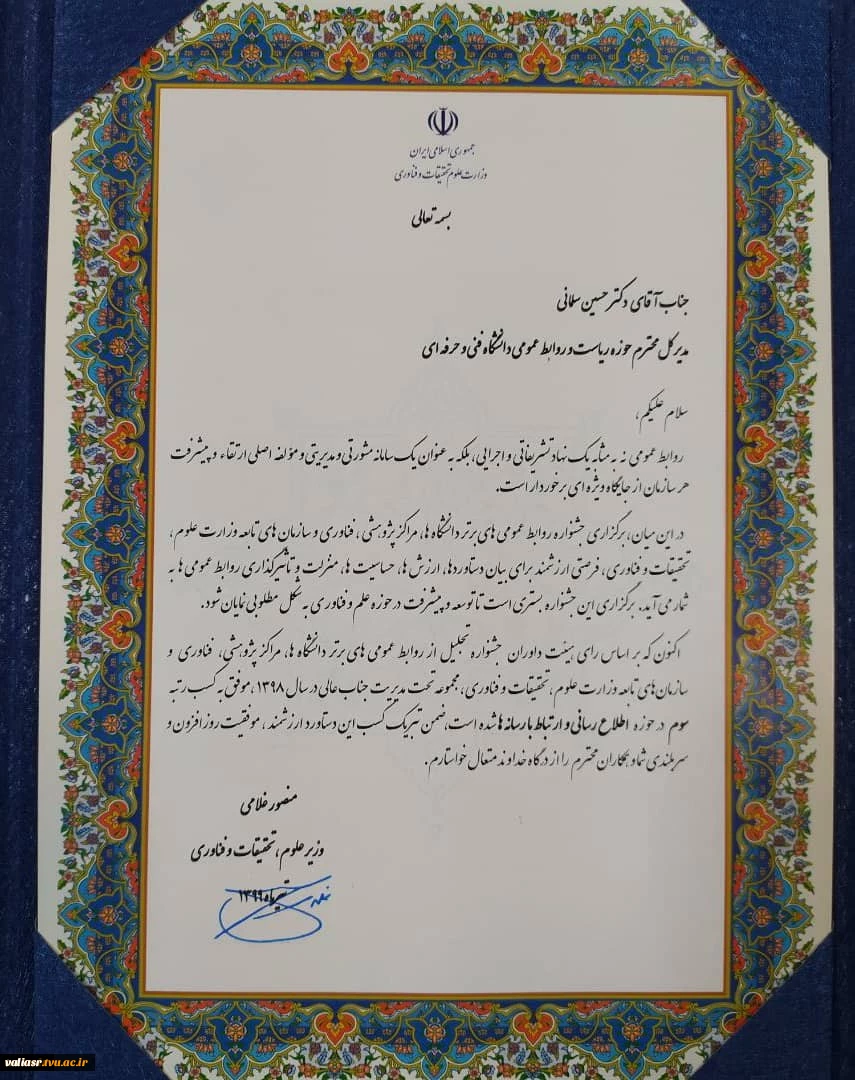 جمهوری اسلامی ایران
وزارت علوم تحقیقات و فناوری
بسمه تعالی
جناب آقای دکتر حسین سلمانی
مدیر کل محترم حوزه ریاست و روابط عمومی دانشگاه فنی و حرفه ای
سلام علیکم،
روابط عمومی نه به مثابه یک نهاد تشریفاتی و اجرایی، بلکه به عنوان یک سامانه مشورتی و مدیریتی و مؤلفه اصلی ارتقاء و پیشرفت
هر سازمان از جایگاه ویژه ای برخوردار است.
در این میان، برگزاری جشنواره روابط عمومی های برتر دانشگاه ها، مراکز پژوهشی، فناوری و سازمان های تابعه وزارت علوم،
تحقیقات و فناوری، فرصتی ارزشمند برای بیان دستاوردها، ارزش ها، حساسیت ها، منزلت و تأثیرگذاری روابط عمومی ها به
شمار می آید. برگزاری این جشنواره بستری است تا توسعه و پیشرفت در حوزه علم و فناوری به شکل مطلوبی نمایان شود.
اکنون که بر اساس رای هیئت داوران جشنواره تجلیل از روابط عمومی های برتر دانشگاه ها، مراکز پژوهشی، فناوری و
سازمان های تابعه وزارت علوم، تحقیقات و فناوری، مجموعه تحت مدیریت جناب عالی در سال ۱۳۹۸، موفق به کسب رتبه
سوم در حوزه اطلاع رسانی و ارتباط با رسانه ها شده است، ضمن تبریک کسب این دستاورد ارزشمند، موفقیت روز افزون و
سربلندی شما و همکاران محترم را از درگاه خداوند متعال خواستارم.
منصور غلامی
وزیر علوم، تحقیقات و فناوری
تیرماه ۱۳۹۹
valiasr.tvu.ac.ir